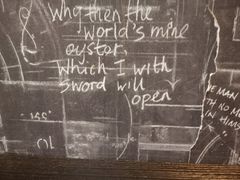 Why then the
world's mine
oyster,
Which I with
sword will
open
E MAN
TH NO M
IN HIMS